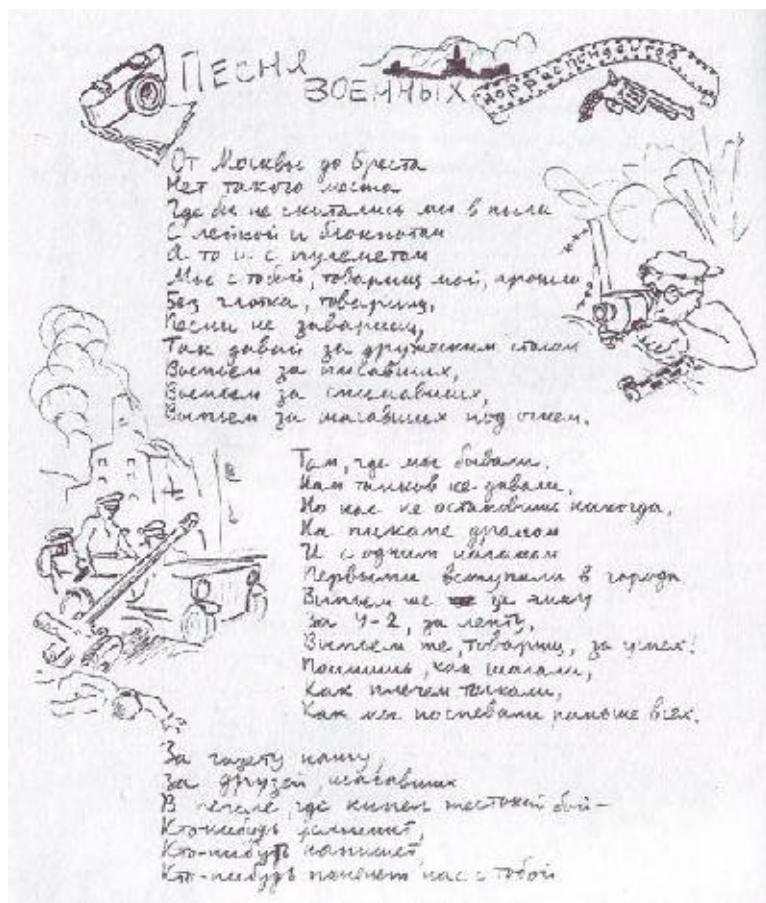 ПЕСНЯ
ВОЕННЫХ
корреспондентов
От Москвы до Бреста
Нет такого места
Где бы не скитались мы в пыли
С лейкой и блокнотом
А то и с пулеметом
Мы с тобой, товарищ мой, прошли
Без глотка, товарищ,
Песни не заваришь,
Так давай за дружеским столом
Выпьем за писавших,
Выпьем за снимавших,
Выпьем за шагавших под огнем.
Там, где мы бывали,
Нам танков не давали,
Но нас не остановишь никогда.
На пикапе драном
И с одним наганом
Первыми вступили в города
Выпьем же за
За У-2, за ленту,
Выпьем же, товарищ, за успех!
Помнишь, как шагали,
Как плечем толкали,
Как мы поспевали раньше всех.
За газету нашу,
За друзей, шагавших
В пекле, где кипел жестокий бой-
Кто-нибудь услышит,
Кто-нибудь напишет,
Кто-нибудь помянет нас с тобой